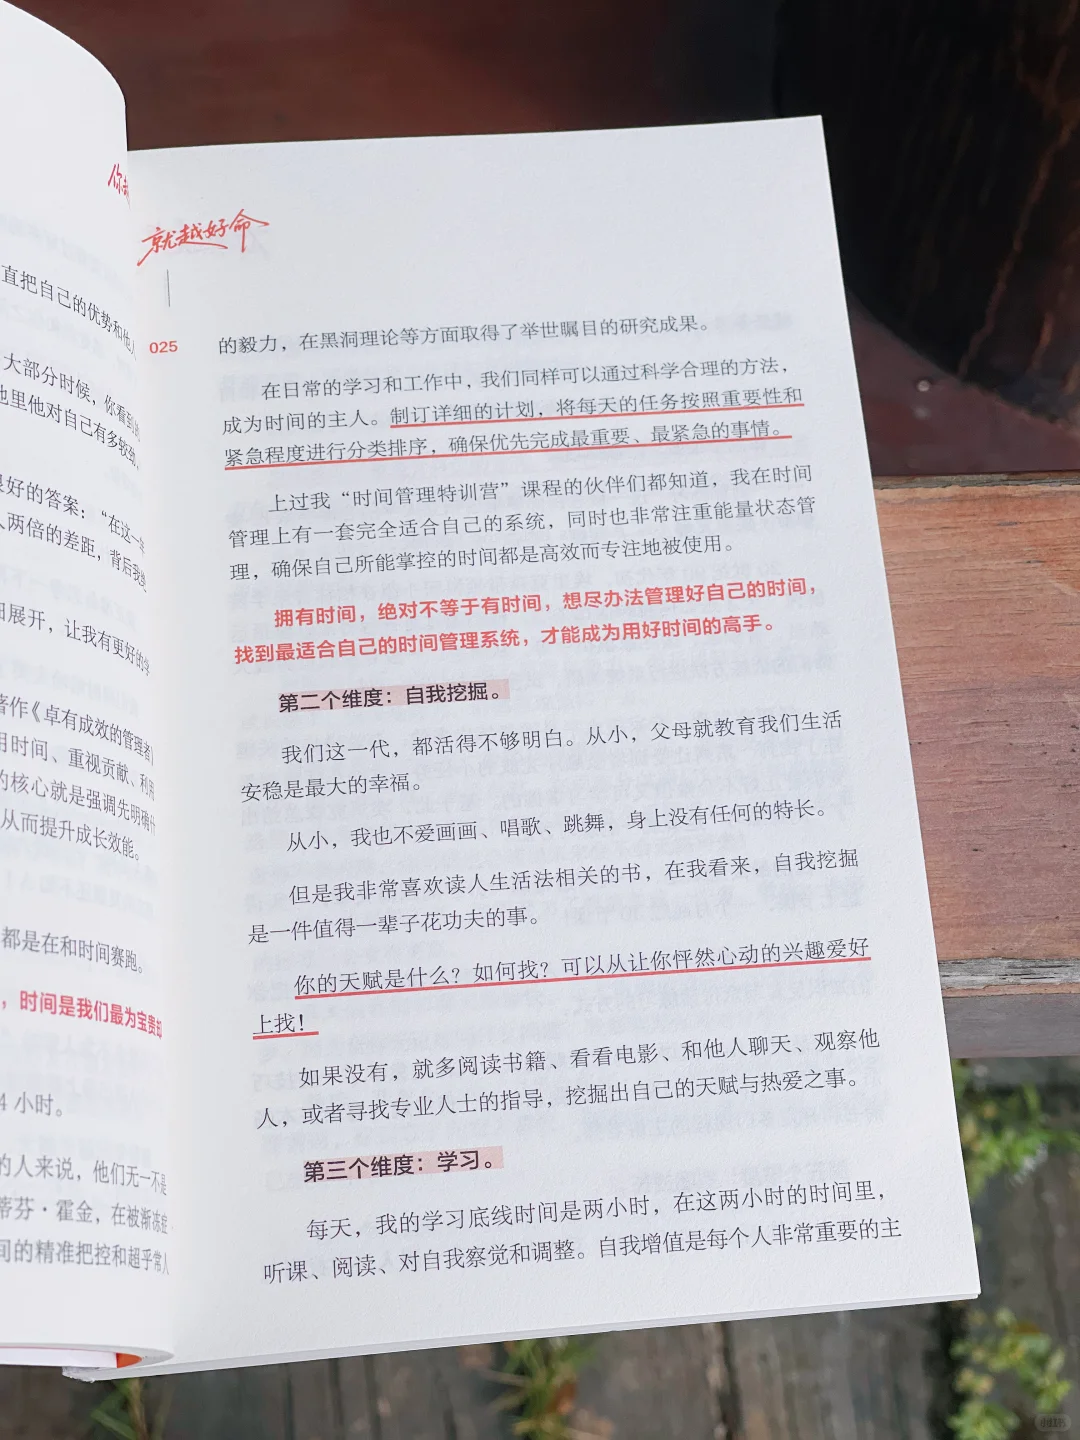 直把自己的优势和他人
大部分时候，你看到的
地里他对自己有多较劲、
良好的答案：“在这一年
人两倍的差距，背后我
细展开，让我有更好的学
著作《卓有成效的管理者》
用时间、重视贡献、利用
的核心就是强调先明确什
从而提升成长效能。
都是在和时间赛跑。
，时间是我们最为宝贵却
4 小时。
的人来说，他们无一不是
蒂芬·霍金，在被渐冻症
间的精准把控和超乎常人
就越好命
025
的毅力，在黑洞理论等方面取得了举世瞩目的研究成果。
在日常的学习和工作中，我们同样可以通过科学合理的方法，
成为时间的主人。制订详细的计划，将每天的任务按照重要性和
紧急程度进行分类排序，确保优先完成最重要、最紧急的事情。
上过我“时间管理特训营”课程的伙伴们都知道，我在时间
管理上有一套完全适合自己的系统，同时也非常注重能量状态管
理，确保自己所能掌控的时间都是高效而专注地被使用。
拥有时间，绝对不等于有时间，想尽办法管理好自己的时间，
找到最适合自己的时间管理系统，才能成为用好时间的高手。
第二个维度：自我挖掘。
我们这一代，都活得不够明白。从小，父母就教育我们生活
安稳是最大的幸福。
从小，我也不爱画画、唱歌、跳舞，身上没有任何的特长。
但是我非常喜欢读人生活法相关的书，在我看来，自我挖掘
是一件值得一辈子花功夫的事。
你的天赋是什么？如何找？可以从让你怦然心动的兴趣爱好
上找！
如果没有，就多阅读书籍、看看电影、和他人聊天、观察他
人，或者寻找专业人士的指导，挖掘出自己的天赋与热爱之事。
第三个维度：学习。
每天，我的学习底线时间是两小时，在这两小时的时间里，
听课、阅读、对自我察觉和调整。自我增值是每个人非常重要的主